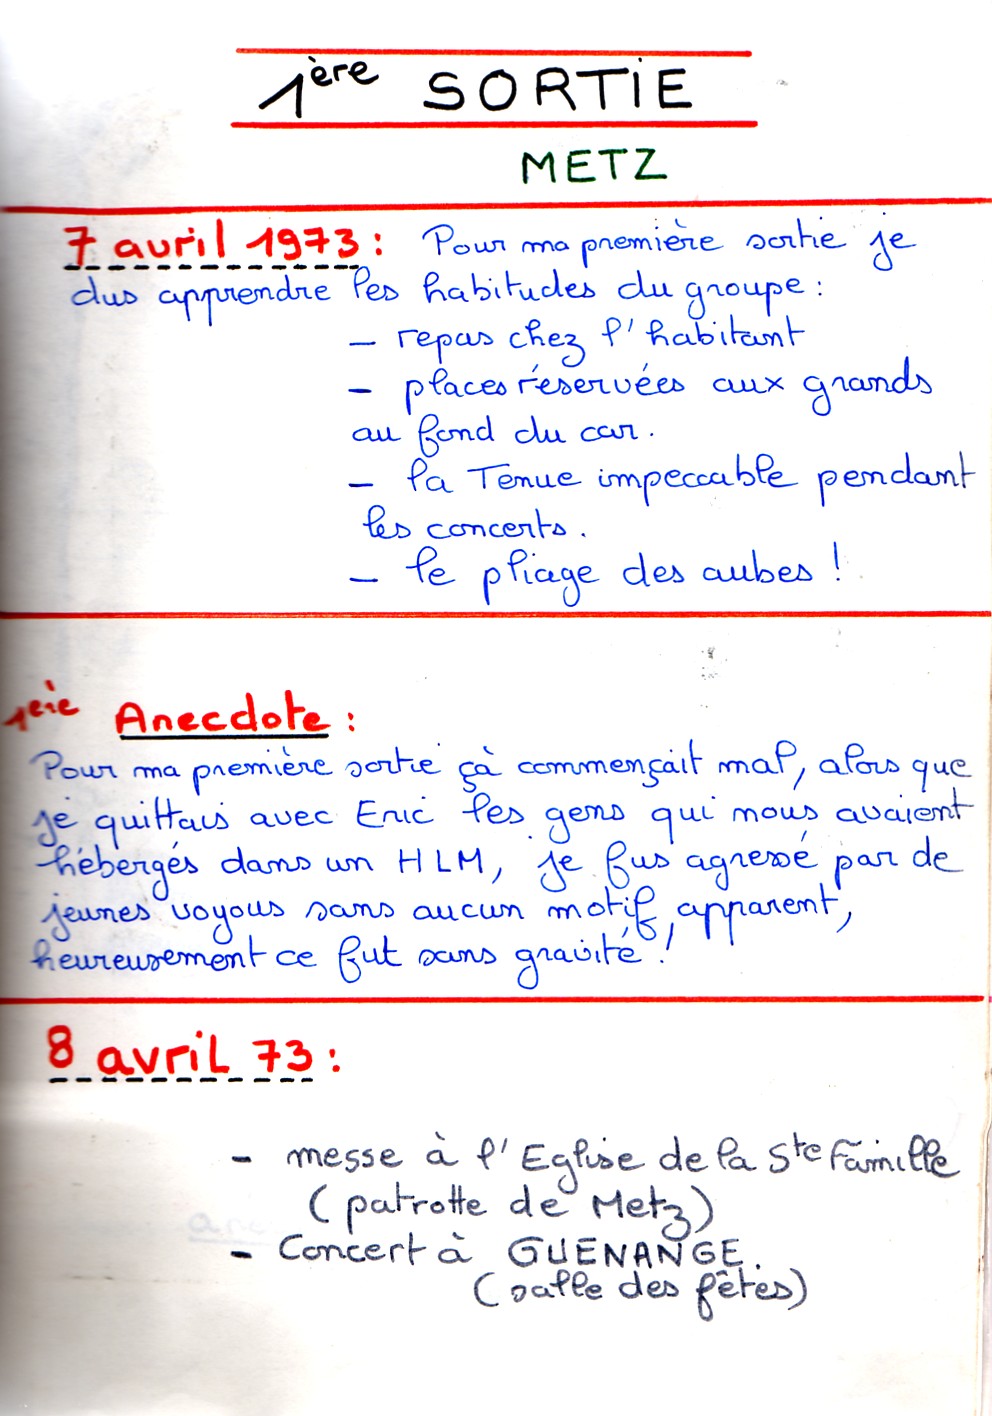 1ère SORTIE
METZ
7 avril 1973 : Pour ma première sortie je
dus apprendre les habitudes du groupe :
- repas chez l'habitant
- places réservées aux grands
au fond du car.
- la Tenue impeccable pendant
les concerts.
- le pliage des aubes !
1ère Anecdote :
Pour ma première sortie çà commençait mal, alors que
je quittais avec Eric les gens qui nous avaient
hébergés dans un HLM, je fus agressé par de
jeunes voyous sans aucun motif apparent,
heureusement ce fut sans gravité !
8 avril 73 :
- messe à l'Eglise de la Ste Famille
(patrotte de Metz)
- Concert à GUENANGE.
(salle des fêtes)